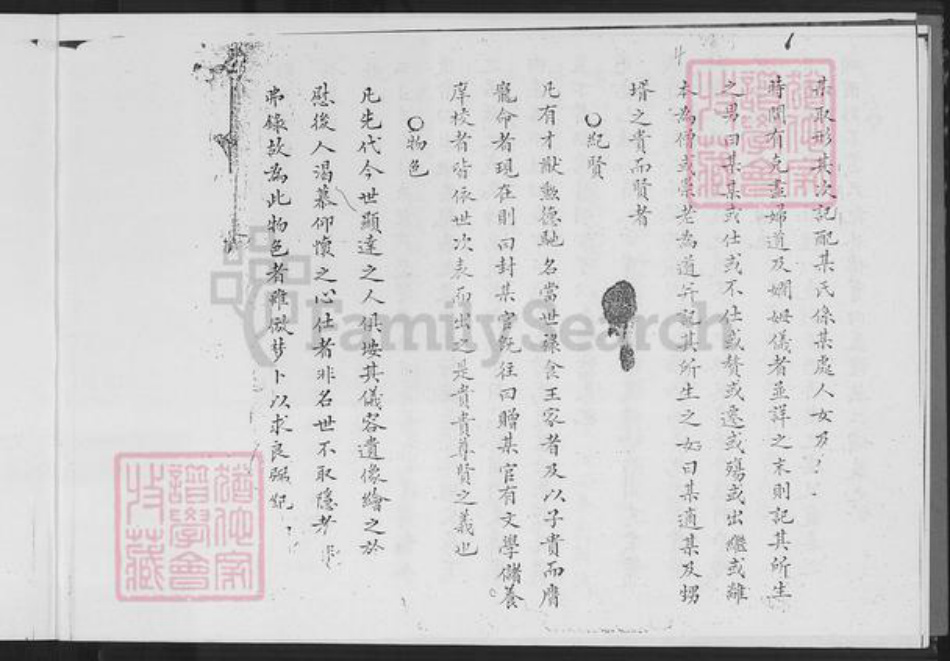 某取形其次記配某氏係某處人女
時間有克盡婦道及嫻姆儀者並詳之末則記其所生
之男曰某某或仕或不仕或贅或遷或殤或出繼或離
本為僧或業老為道并記其所生之女曰某適某及甥
壻之貴而賢者
○紀賢
凡有才猷勲德馳名當世祿食王家者及以子貴而膺
寵命者現在則曰封某官既往曰贈某官有文學儲養
庠校者皆依世次表而出之是貴貴尊賢之義也
○物色
凡先代今世顯達之人俱按其儀容遺像繪之於
慰後人渴慕仰懷之心仕者非名世不取隱者非
弗錄故為此物色者雖倣夢卜以求良弼
FamilySearch
譜學會
收藏
譜學會
收藏